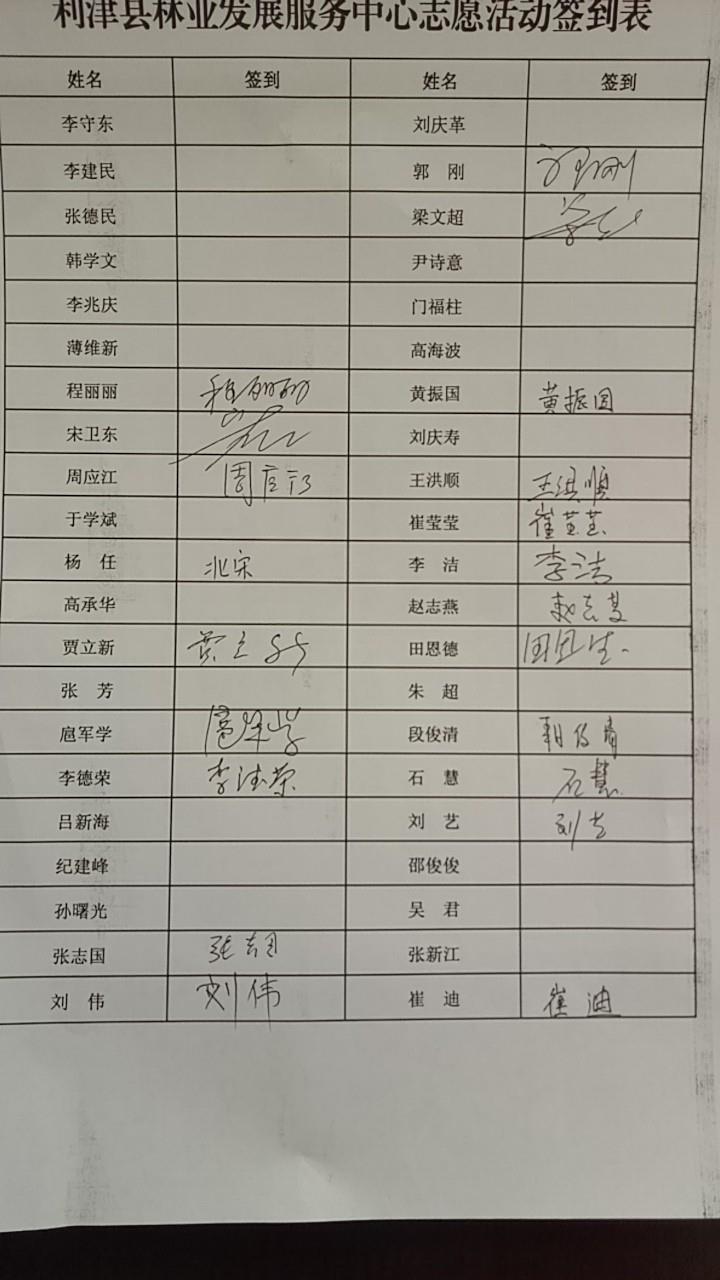 利津县林业发展服务中心志愿活动签到表
姓名 签到 姓名 签到
李守东 刘庆革
李建民 郭 刚
张德民 梁文超
韩学文 尹诗意
李兆庆 门福柱
薄维新 高海波
程丽丽 程丽丽 黄振国 黄振国
宋卫东 刘庆寿
周应江 周应江 王洪顺 王洪顺
于学斌 崔莹莹 崔莹莹
杨 任 李 洁 李洁
高承华 赵志燕
贾立新 贾立新 田恩德
张 芳 朱 超
扈军学 扈军学 段俊清 段俊清
李德荣 李德荣 石 慧 石慧
吕新海 刘 艺 刘艺
纪建峰 邵俊俊
孙曙光 吴 君
张志国 张志国 张新江
刘 伟 刘伟 崔 迪 崔迪